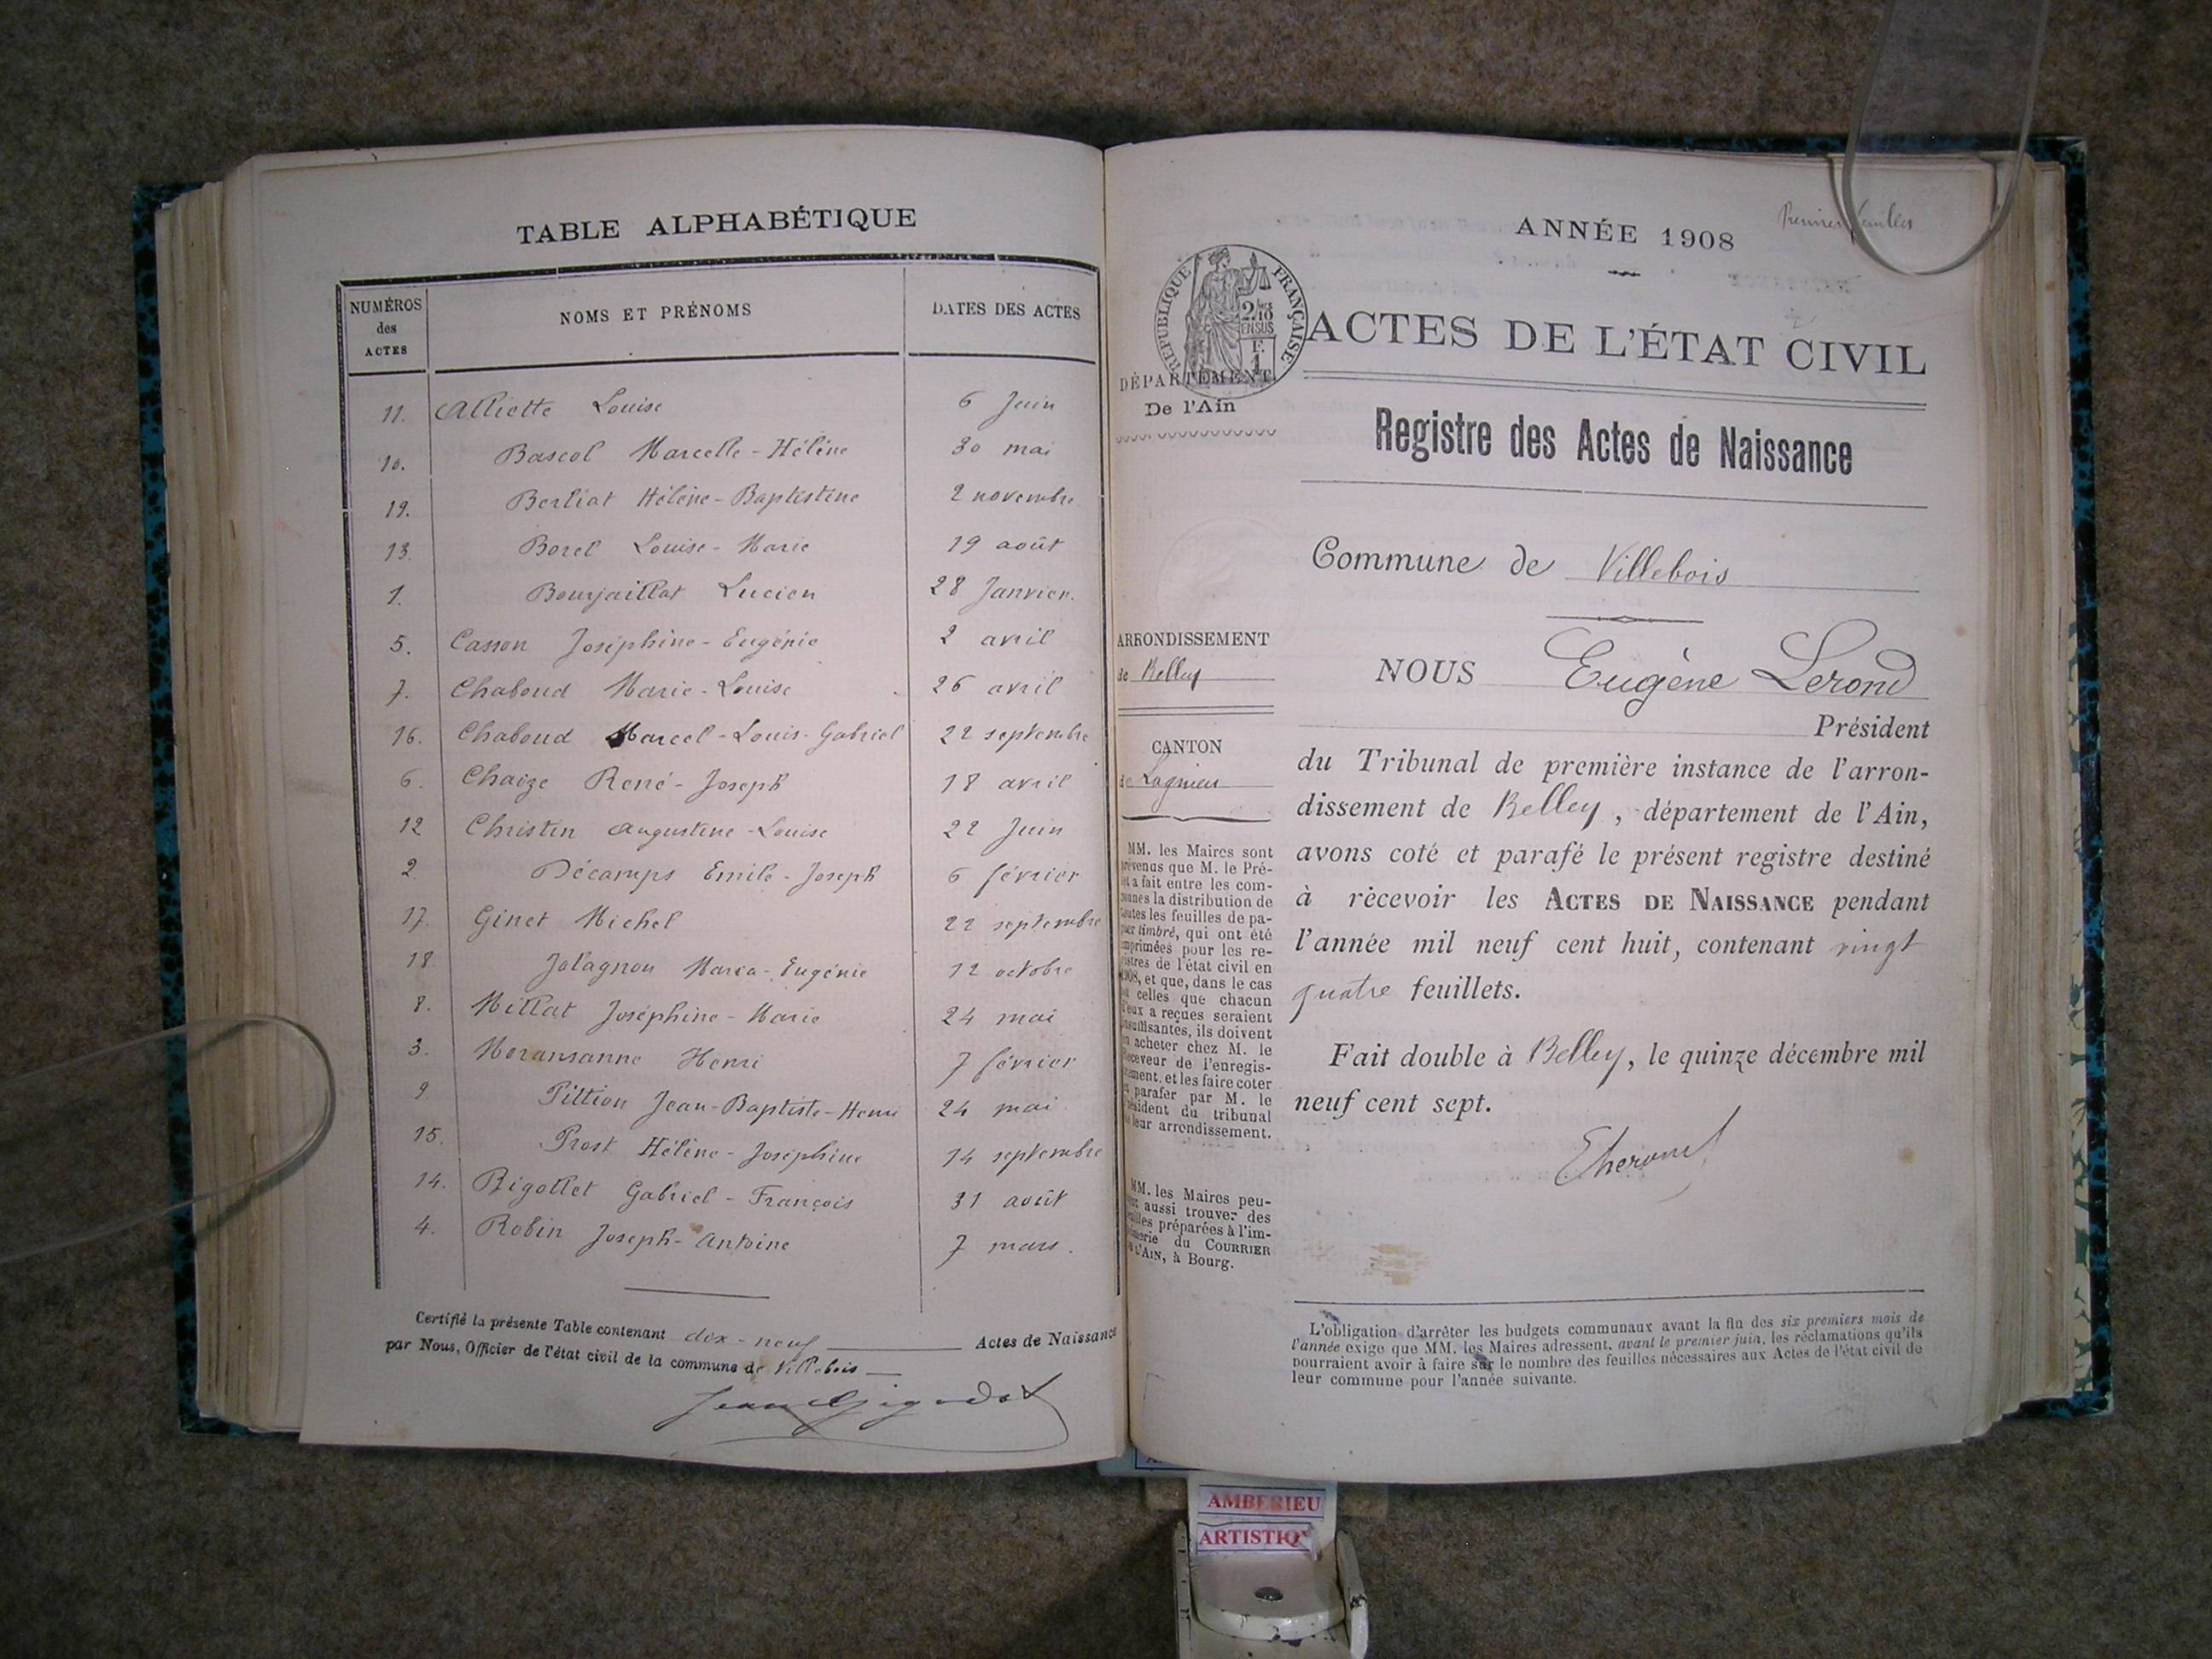 TABLE ALPHABÉTIQUE
NUMÉROS des ACTES
NOMS ET PRÉNOMS
DATES DES ACTES
11. Alliette Louise 6 Juin
10. Bascol Marcelle-Hélène 30 mai
19. Berliat Hélène-Baptistine 2 novembre
13. Borel Louise-Marie 19 août
1. Bourjaillat Lucien 28 Janvier.
5. Casson Joséphine-Eugénie 2 avril
7. Chaboud Marie-Louise 26 avril
16. Chaboud Marcel-Louis-Gabriel 22 septembre
6. Chaize René-Joseph 18 avril
12 Christin Augustine-Louise 22 Juin
2 Décamps Emile-Joseph 6 février
17. Ginet Michel 22 septembre
18 Jolagnon Maria-Eugénie 12 octobre
8. Millat Joséphine-Marie 24 mai
3. Moransanne Henri 7 février
9 Pittion Jean-Baptiste-Henri 24 mai
15. Prost Hélène-Joséphine 14 septembre
14. Rigollet Gabriel-François 31 août
4. Robin Joseph-Antoine 7 mars.
Certifié la présente Table contenant dix-neuf Actes de Naissance
par Nous, Officier de l'état civil de la commune de Villebois
ANNÉE 1908
RÉPUBLIQUE FRANÇAISE
2/10 EN SUS
F. 1
DÉPARTEMENT
De l'Ain
ACTES DE L'ÉTAT CIVIL
Registre des Actes de Naissance
Commune de Villebois
ARRONDISSEMENT
de Belley
CANTON
de Lagnieu
MM. les Maires sont
prévenus que M. le Pré-
fet a fait entre les com-
munes la distribution de
toutes les feuilles de pa-
pier timbré, qui ont été
imprimées pour les re-
gistres de l'état civil en
1908, et que, dans le cas
où celles que chacun
d'eux a reçues seraient
insuffisantes, ils doivent
en acheter chez M. le
Receveur de l'enregis-
trement, et les faire coter
et parafer par M. le
Président du tribunal
de leur arrondissement.
MM. les Maires peu-
vent aussi trouver des
feuilles préparées à l'im-
primerie du COURRIER
DE L'AIN, à Bourg.
NOUS Eugène Lerond
Président
du Tribunal de première instance de l'arron-
dissement de Belley, département de l'Ain,
avons coté et parafé le présent registre destiné
à recevoir les ACTES DE NAISSANCE pendant
l'année mil neuf cent huit, contenant vingt
quatre feuillets.
Fait double à Belley, le quinze décembre mil
neuf cent sept.
L'obligation d'arrêter les budgets communaux avant la fin des six premiers mois de
l'année exige que MM. les Maires adressent, avant le premier juin, les réclamations qu'ils
pourraient avoir à faire sur le nombre des feuilles nécessaires aux Actes de l'état civil de
leur commune pour l'année suivante.
AMBERIEU
ARTISTIQ